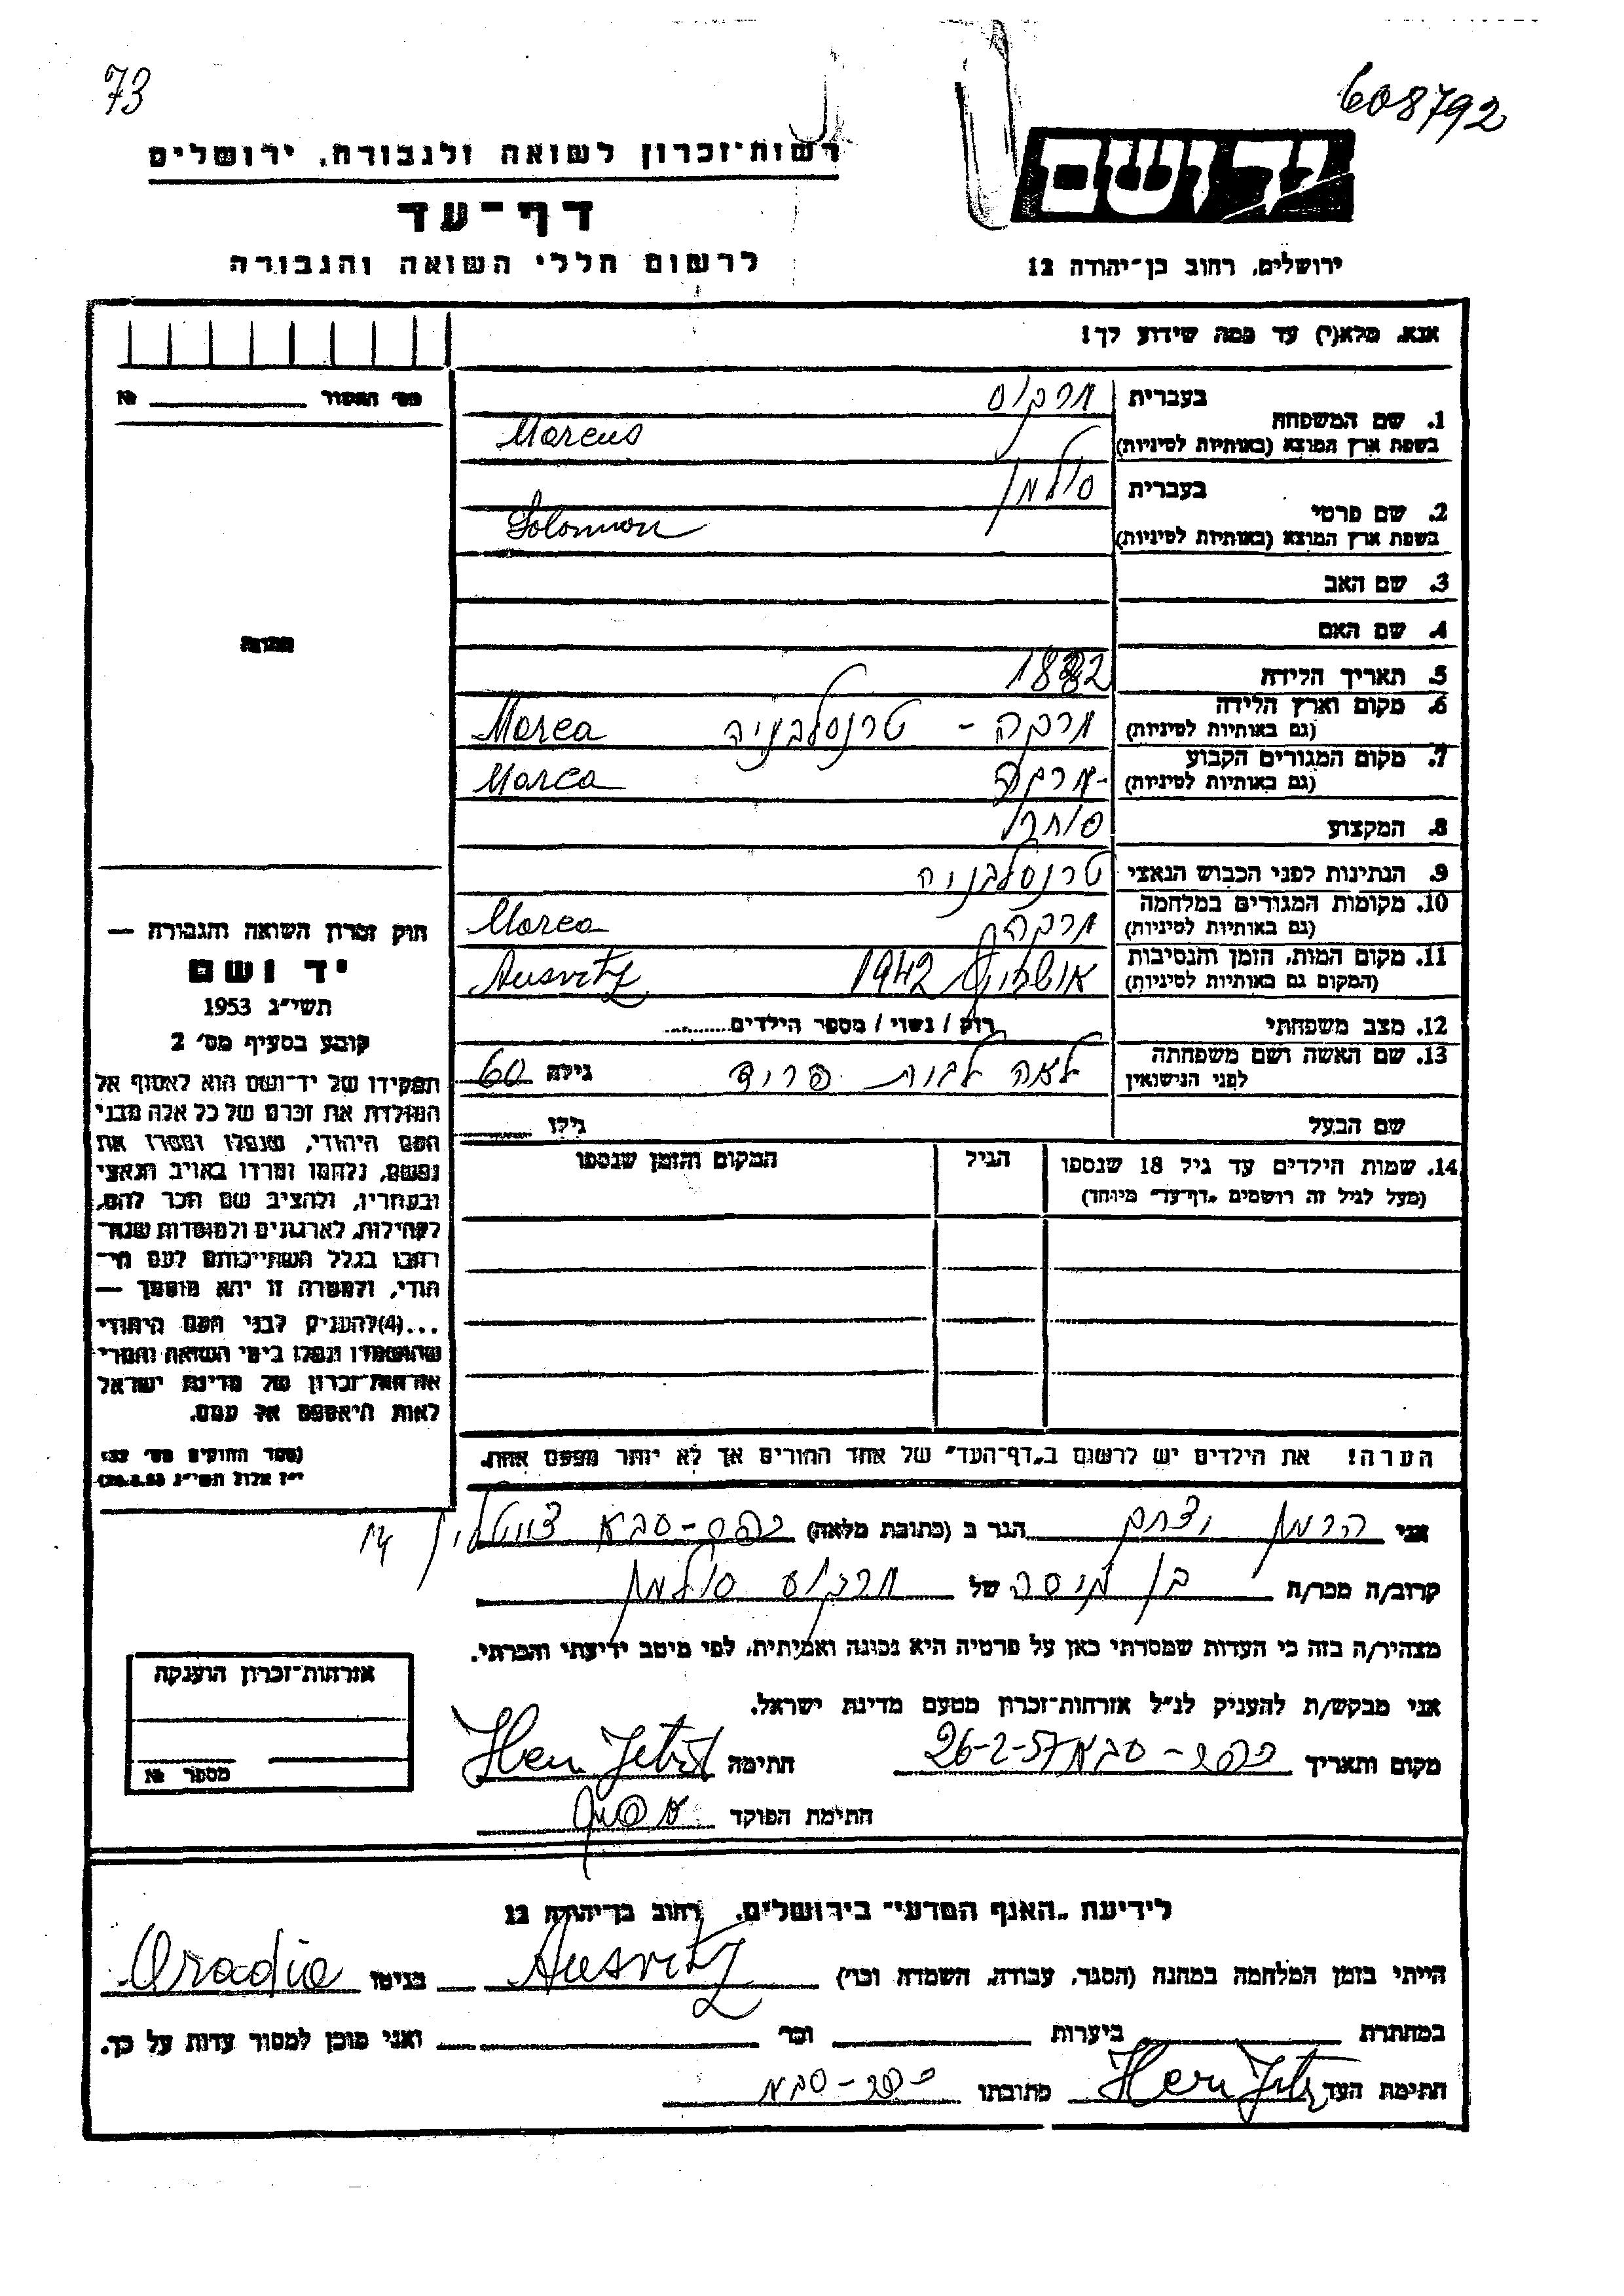 73
608792
רשות-זכרון לשואה ולגבורה, ירושלים
יד ושם
דף-עד
לרשום חללי השואה והגבורה
ירושלים, רחוב בן-יהודה 12
אנא, מלא(י) עד כמה שידוע לך!
מס' האסור № ______
תמונה
1. שם המשפחה בעברית מרקוס
בשפת ארץ המוצא (באותיות לטיניות) Marcus
2. שם פרטי בעברית סולמן
בשפת ארץ המוצא (באותיות לטיניות) Solomon
3. שם האב
4. שם האם
5. תאריך הלידה 1882
6. מקום וארץ הלידה מרקה - טרנסלבניה Marca
(גם באותיות לטיניות)
7. מקום המגורים הקבוע מרקה Marca
(גם באותיות לטיניות)
8. המקצוע סוחר
9. הנתינות לפני הכבוש הנאצי טרנסלבניה
10. מקומות המגורים במלחמה מרקה Marca
(גם באותיות לטיניות)
11. מקום המות, הזמן והנסיבות 1942 Ausvitz
(המקום גם באותיות לטיניות)
12. מצב משפחתי רוק / נשוי / מספר הילדים..........
13. שם האשה ושם משפחתה לאה לבית פריד גילה 60
לפני הנישואין
שם הבעל גילו ______
14. שמות הילדים עד גיל 18 שנספו הגיל המקום והזמן שנספו
(מעל לגיל זה רושמים "דף-עד" מיוחד)
חוק זכרון השואה והגבורה —
יד ושם
תשי"ג 1953
קובע בסעיף מס' 2
תפקידו של יד-ושם הוא לאסוף אל
המולדת את זכרם של כל אלה מבני
העם היהודי, שנפלו ומסרו את
נפשם, נלחמו ומרדו באויב הנאצי
ובעוזריו, ולהציב שם וזכר להם,
לקהילות, לארגונים ולמוסדות שנח-
רבו בגלל השתייכותם לעם הי-
הודי, ולמטרה זו יהא מוסמך —
...(4)להעניק לבני העם היהודי
שהושמדו ונפלו בימי השואה והמרי
אזרחות-זכרון של מדינת ישראל
לאות היאספם אל עמם.
(ספר החוקים מס' 132
י"ז אלול תשי"ג 28.8.53)
הערה! את הילדים יש לרשום ב"דף-העד" של אחד ההורים אך לא יותר מפעם אחת.
אני הרמן יצחק הגר ב (כתובת מלאה) כפר-סבא 14
קרוב/ה מכר/ה בן גיסה של מרקוס סולמן
מצהיר/ה בזה כי העדות שמסרתי כאן על פרטיה היא נכונה ואמיתית, לפי מיטב ידיעתי והכרתי.
אני מבקש/ת להעניק לנ"ל אזרחות-זכרון מטעם מדינת ישראל.
מקום ותאריך כפר-סבא 26-2-57 חתימה
חתימת הפוקד
אזרחות-זכרון הוענקה
מספר №
לידיעת "האגף המדעי" בירושלים, רחוב בן-יהודה 12
הייתי בזמן המלחמה במחנה (הסגר, עבודה, השמדה וכו') Ausvitz בגיטו Oradia
במחתרת ______ ביערות ______ וכו' ______ ואני מוכן למסור עדות על כך.
חתימת העד כתובתו כפר-סבא